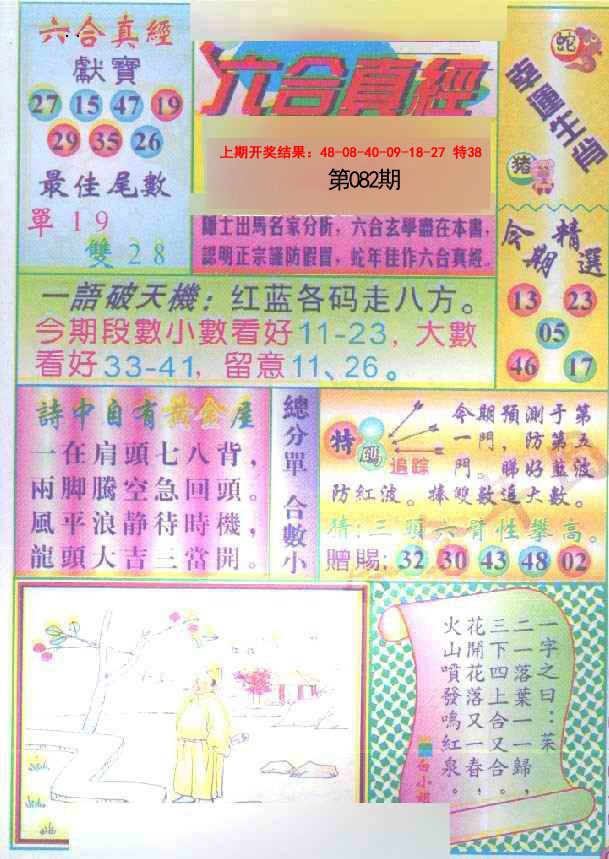 六合真經
獻寶
27 15 47 19
29 35 26
最佳尾數
單 1 9
雙 2 8
六合真經
上期开奖结果: 48-08-40-09-18-27 特38
第082期
隱士出馬名家分析，六合玄學盡在本書，
認明正宗謹防假冒，蛇年佳作六合真經。
蛇
猪
今期精選
13 23
05
46 17
一語破天機：红蓝各码走八方。
今期段數小數看好11-23，大數
看好33-41，留意11、26。
詩中自有黃金屋
一在肩頭七八背，
兩脚騰空急回頭。
風平浪静待時機，
龍頭大吉三當開。
總分單 合數小
特碼
追踪
今期預測于第
一門，防第五
門。睇好藍波
防紅波。捧雙數追大數。
猜：三頭六臂性攀高。
贈賜：32 30 43 48 02
一字之曰：茱
二一落葉一一歸，
三下四上合又合。
花開花落又一春，
火山噴發鳴紅泉。
白小姐